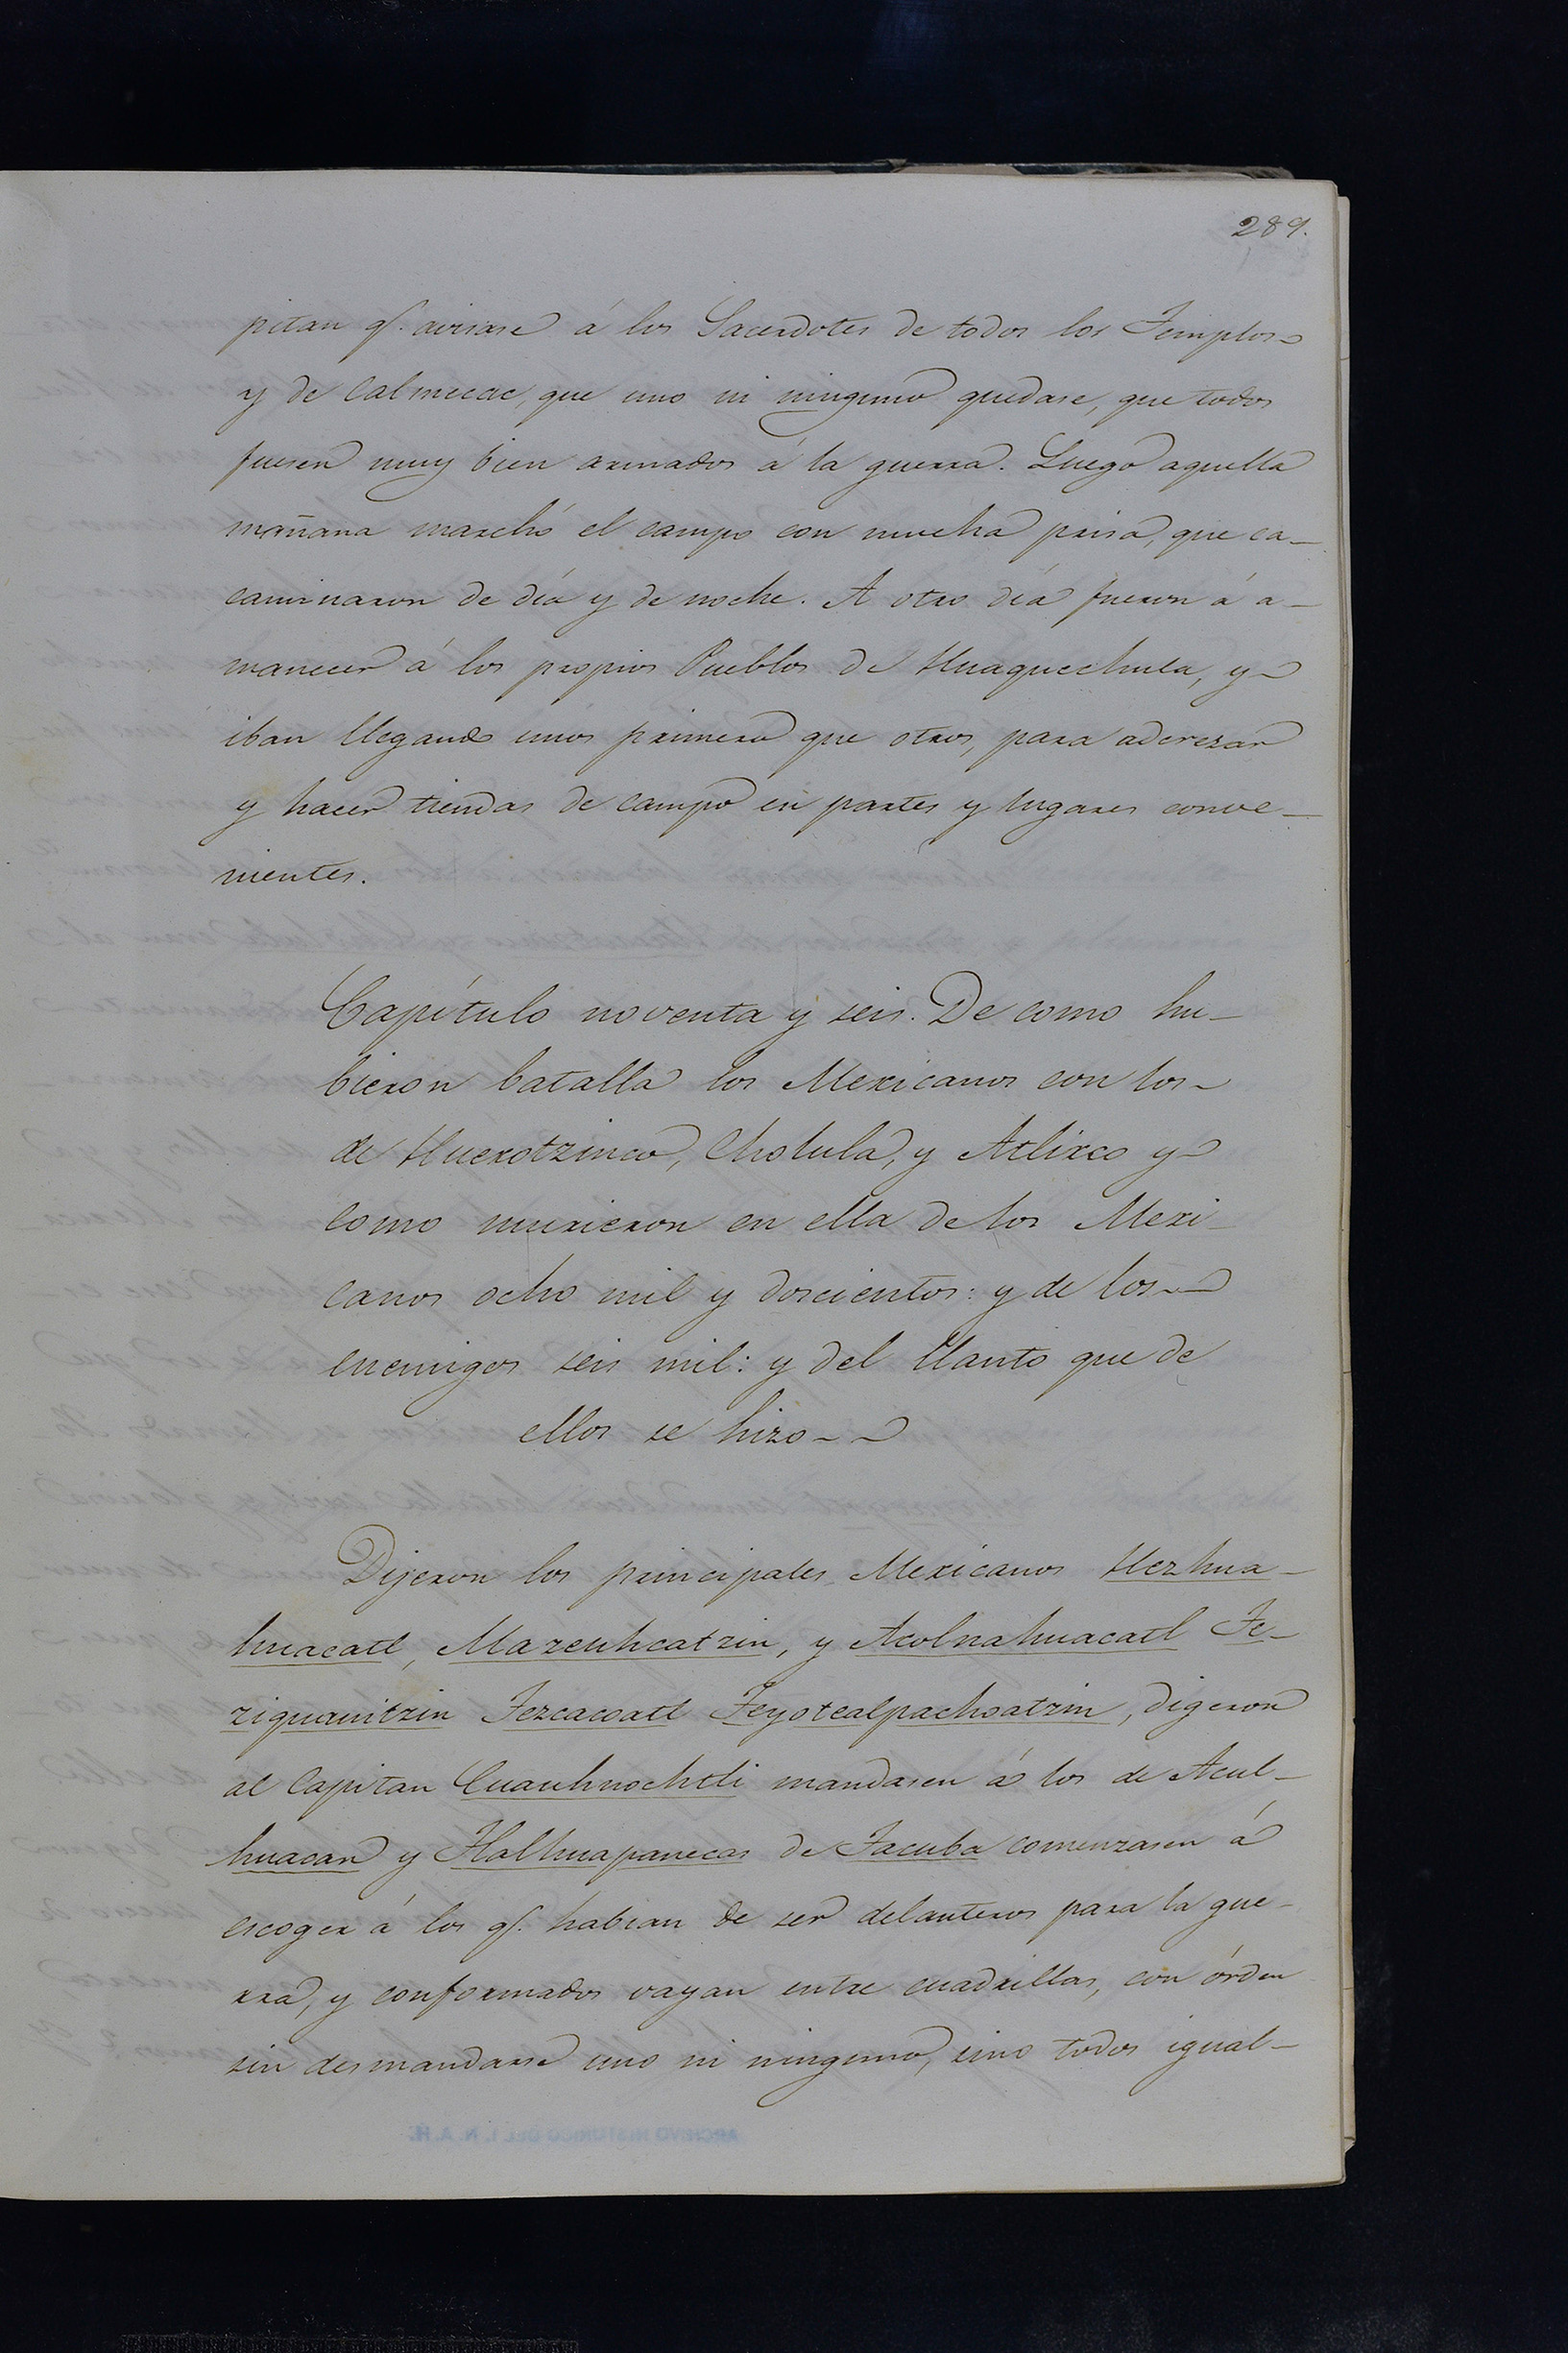 289.
pitan q.e avisase á los Sacerdotes de todos los Templos
y de Calmecac, que uno ni ninguno quedase, que todos
fuesen muy bien armados á la guerra. Luego aquella
mañana marchó el campo con mucha prisa, que ca-
caminaron de día y de noche. A otro día fueron á a-
manecer á los propios Pueblos de Huaquechula, y
iban llegando unos primero que otros, para aderezar
y hacer tiendas de campo en partes y lugares conve-
nientes.
Capítulo noventa y seis. De como hu-
bieron batalla los Mexicanos con los
de Huexotzinco, Cholula, y Atlixco y
como murieron en ella de los Mexi-
canos ocho mil y doscientos: y de los
enemigos seis mil: y del llanto que de
ellos se hizo
Dijeron los principales Mexicanos Hezhua-
huacatl, Mazeuhcatzin, y Acolnahuacatl Te-
ziquauitzin Tezcacoatl Teyotcalpachoatzin, digeron
al Capitan Cuauhnochtli mandasen á los de Acul-
huacan y Tlalhuapanecas de Tacuba comenzasen á
escoger á los q.e habian de ser delanteros para la gue-
rra, y conformados vayan entre cuadrillas, con órden
sin desmandarse uno ni ninguno, sino todos igual-
ARCHIVO HISTORICO DEL I. N. A. H.